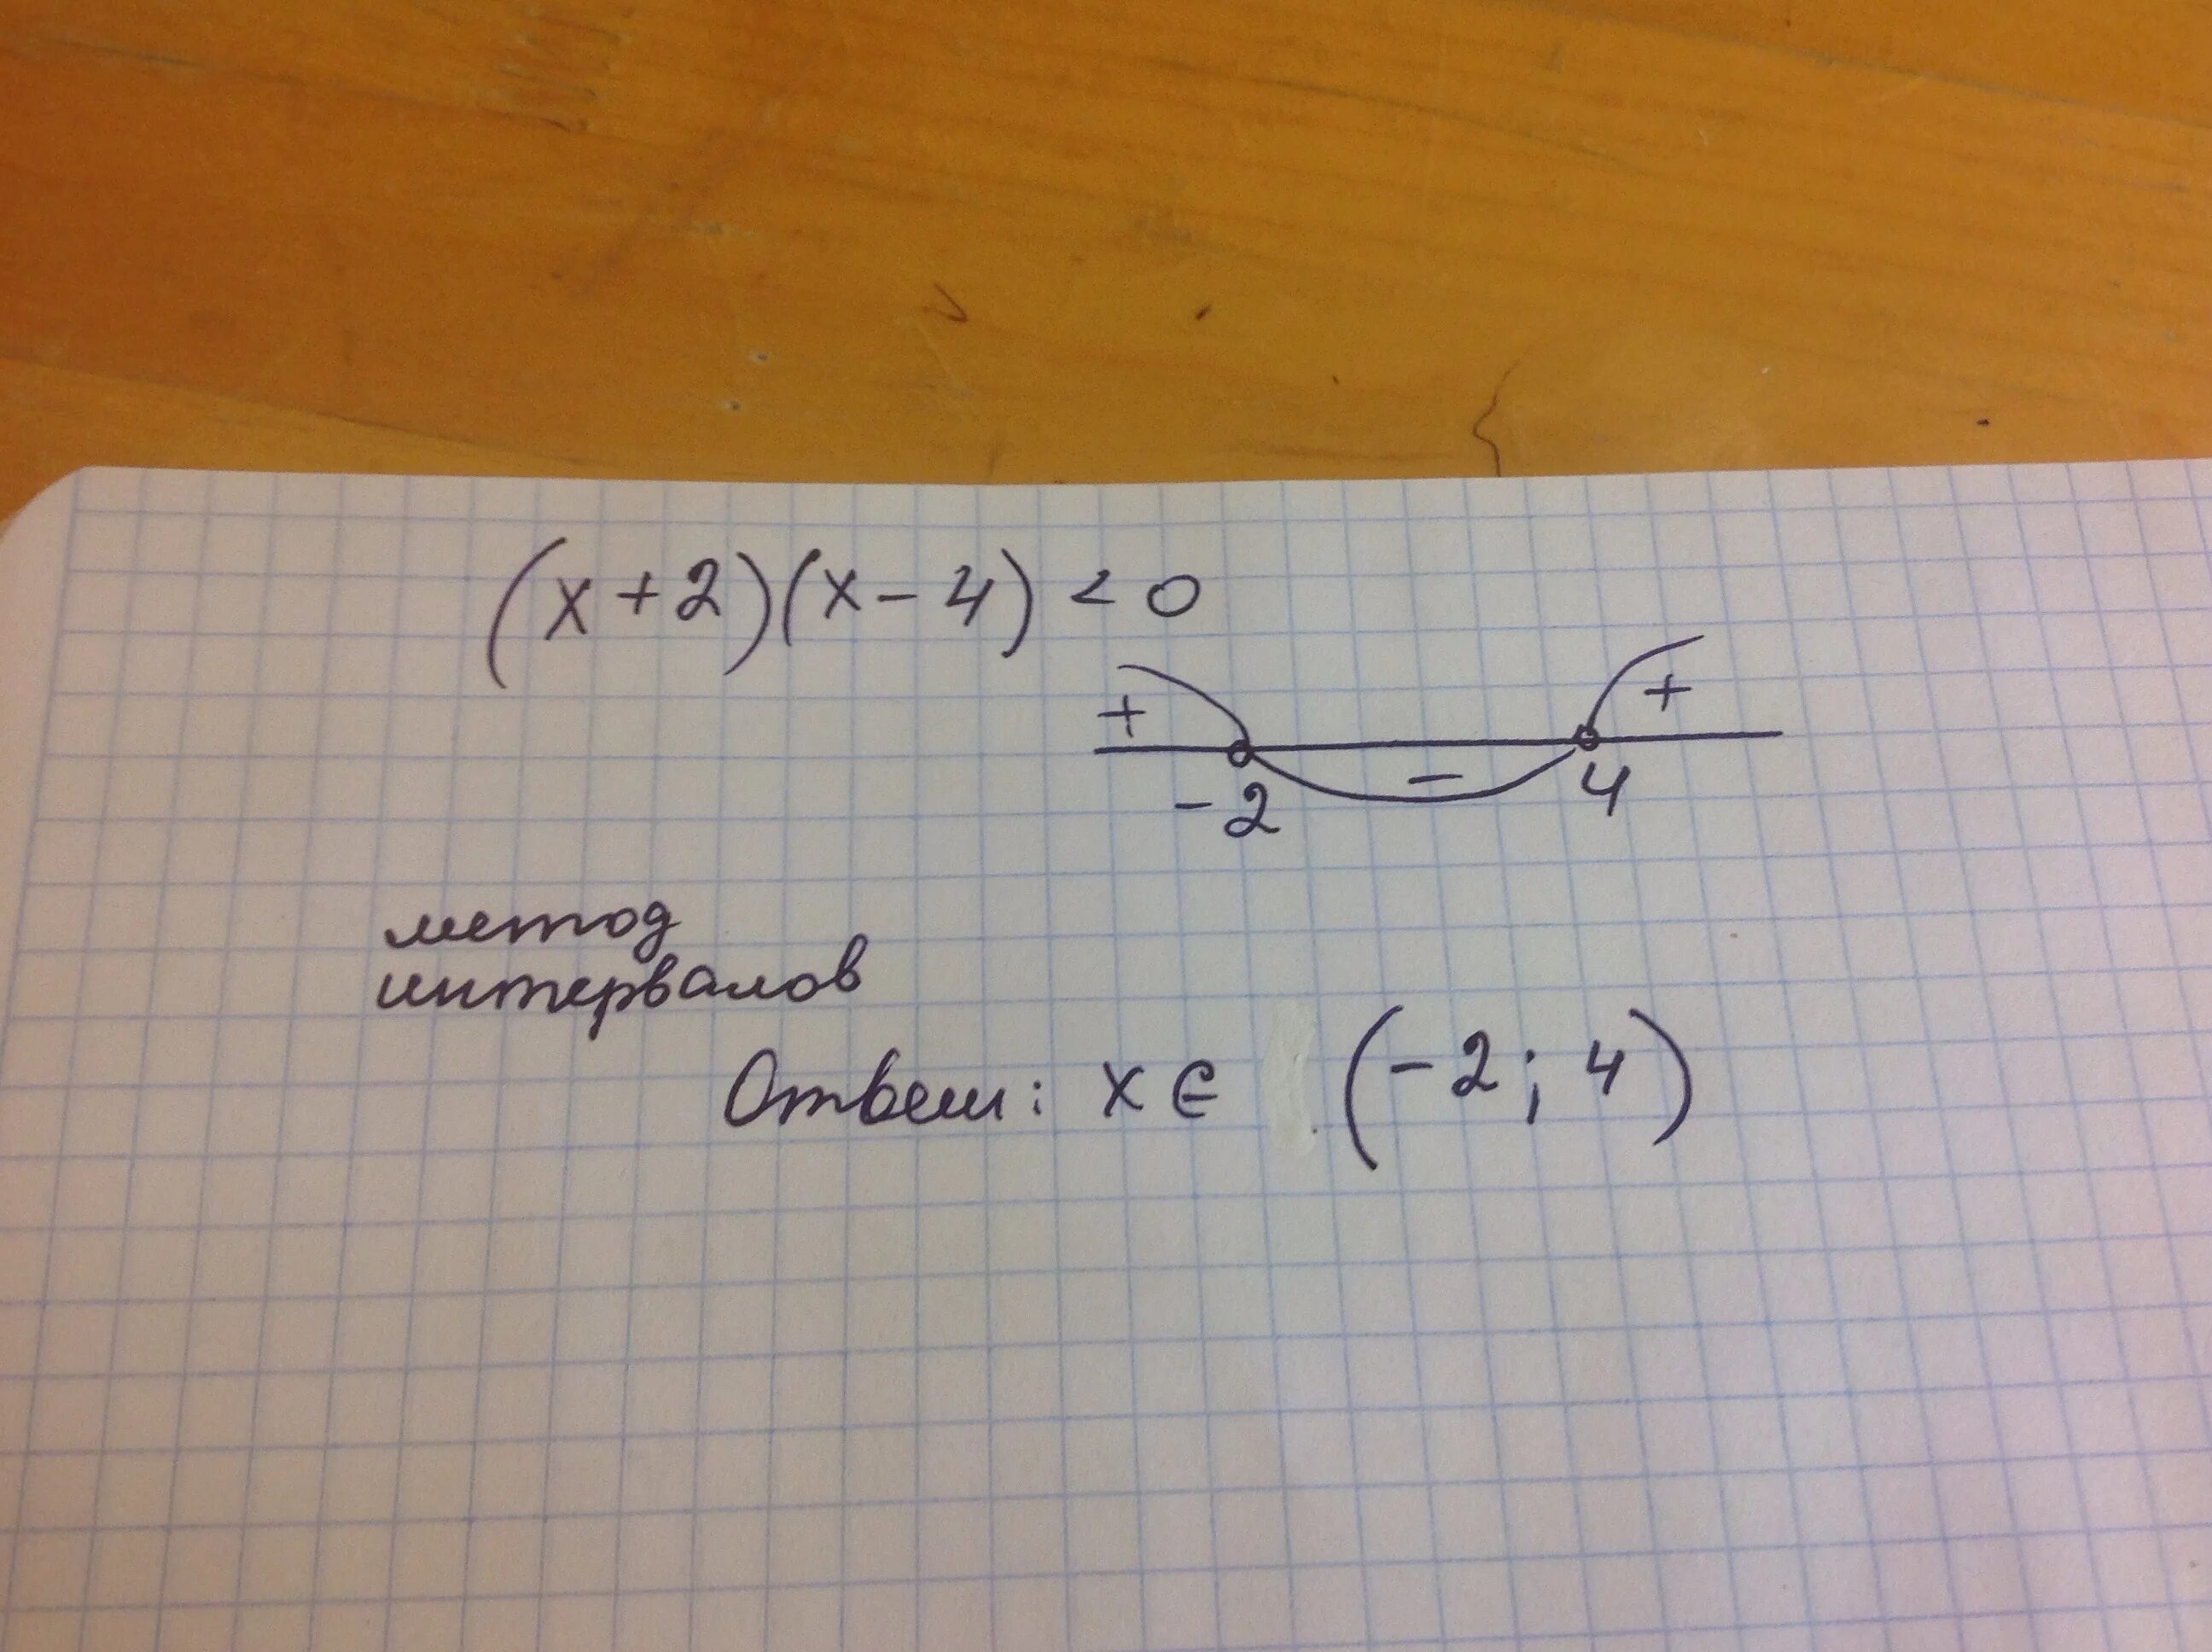 (x+2)(x-4) < 0
+ - +
-2 4
метод
интервалов
Ответ: x ∈ (-2; 4)